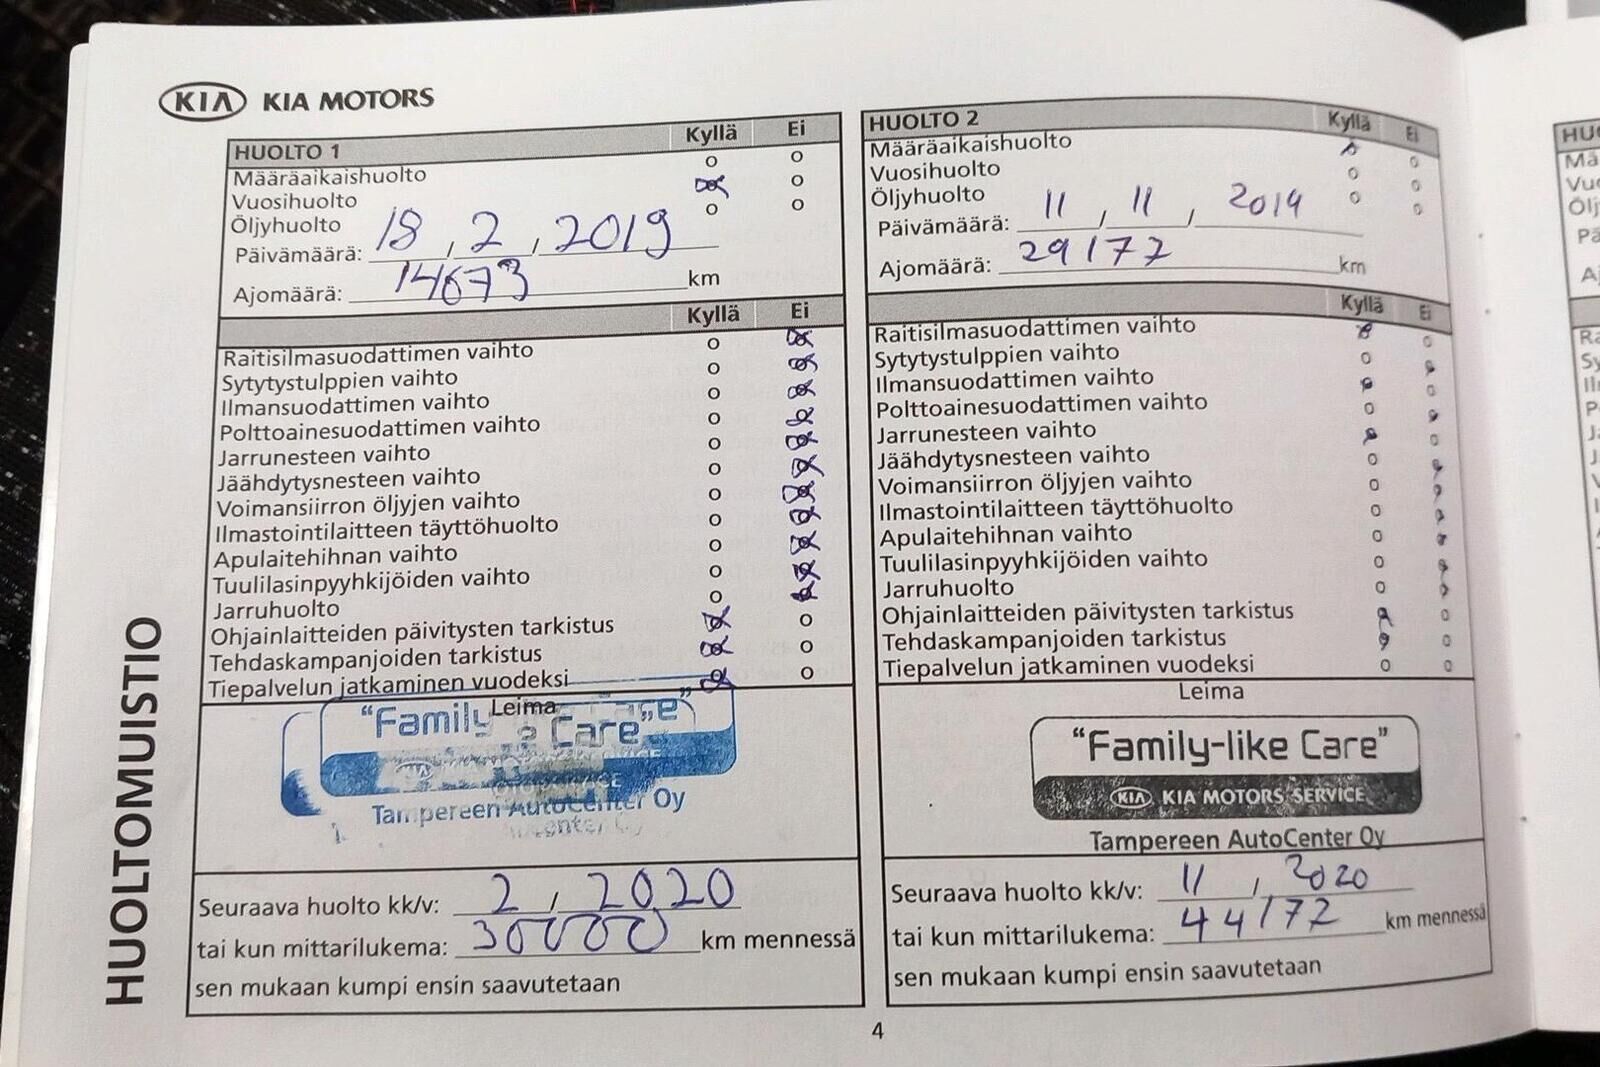 KIA KIA MOTORS
HUOLTOMUISTIO
HUOLTO 1 Kyllä Ei
Määräaikaishuolto
Vuosihuolto
Öljyhuolto
Päivämäärä: 18, 2, 2019
Ajomäärä: 14673 km
Kyllä Ei
Raitisilmasuodattimen vaihto
Sytytystulppien vaihto
Ilmansuodattimen vaihto
Polttoainesuodattimen vaihto
Jarrunesteen vaihto
Jäähdytysnesteen vaihto
Voimansiirron öljyjen vaihto
Ilmastointilaitteen täyttöhuolto
Apulaitehihnan vaihto
Tuulilasinpyyhkijöiden vaihto
Jarruhuolto
Ohjainlaitteiden päivitysten tarkistus
Tehdaskampanjoiden tarkistus
Tiepalvelun jatkaminen vuodeksi
Leima
"Family Care"
Tampereen AutoCenter Oy
Seuraava huolto kk/v: 2, 2020
tai kun mittarilukema: 30000 km mennessä
sen mukaan kumpi ensin saavutetaan
HUOLTO 2 Kyllä Ei
Määräaikaishuolto
Vuosihuolto
Öljyhuolto
Päivämäärä: 11, 11, 2019
Ajomäärä: 29177 km
Kyllä Ei
Raitisilmasuodattimen vaihto
Sytytystulppien vaihto
Ilmansuodattimen vaihto
Polttoainesuodattimen vaihto
Jarrunesteen vaihto
Jäähdytysnesteen vaihto
Voimansiirron öljyjen vaihto
Ilmastointilaitteen täyttöhuolto
Apulaitehihnan vaihto
Tuulilasinpyyhkijöiden vaihto
Jarruhuolto
Ohjainlaitteiden päivitysten tarkistus
Tehdaskampanjoiden tarkistus
Tiepalvelun jatkaminen vuodeksi
Leima
"Family-like Care"
KIA KIA MOTORS SERVICE
Tampereen AutoCenter Oy
Seuraava huolto kk/v: 11, 2020
tai kun mittarilukema: 44177 km mennessä
sen mukaan kumpi ensin saavutetaan
4